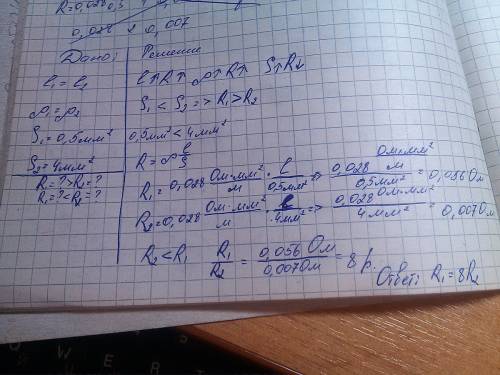 R=0,028
0,028 0,007
Дано: Решение
l₁ = l₂
ρ₁=ρ₂
S₁=0,5мм²
S₂=4мм²
R₁=?>R₂=?
R₁=?<R₂=?
l↑R↑ ρ↑R↑ S↑R↓
S₁ < S₂ => R₁>R₂
0,5мм² < 4мм²
R=ρ l/S
R₁=0,028 Ом·мм²/м · l/0,5мм² => 0,028 Ом·мм²/м / 0,5мм² = 0,056 Ом
R₂=0,028 Ом·мм²/м · l/4мм² => 0,028 Ом·мм²/м / 4мм² = 0,007 Ом
R₂<R₁ R₁/R₂ = 0,056 Ом/0,007 Ом = 8 р.
Ответ: R₁=8R₂
W E R T